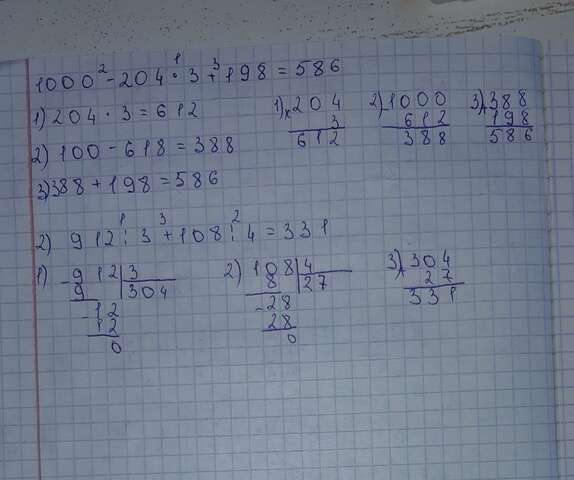 1000 - 204 · 3 + 198 = 586
2 1 3
1) 204 · 3 = 612
2) 100 - 618 = 388
3) 388 + 198 = 586
1) × 204
3
612
2) - 1000
612
388
3) + 388
198
586
2) 912 : 3 + 108 : 4 = 331
1 3 2
1) - 912 | 3
9 | 304
- 12
12
0
2) 108 | 4
8 | 27
- 28
28
0
3) + 304
27
331